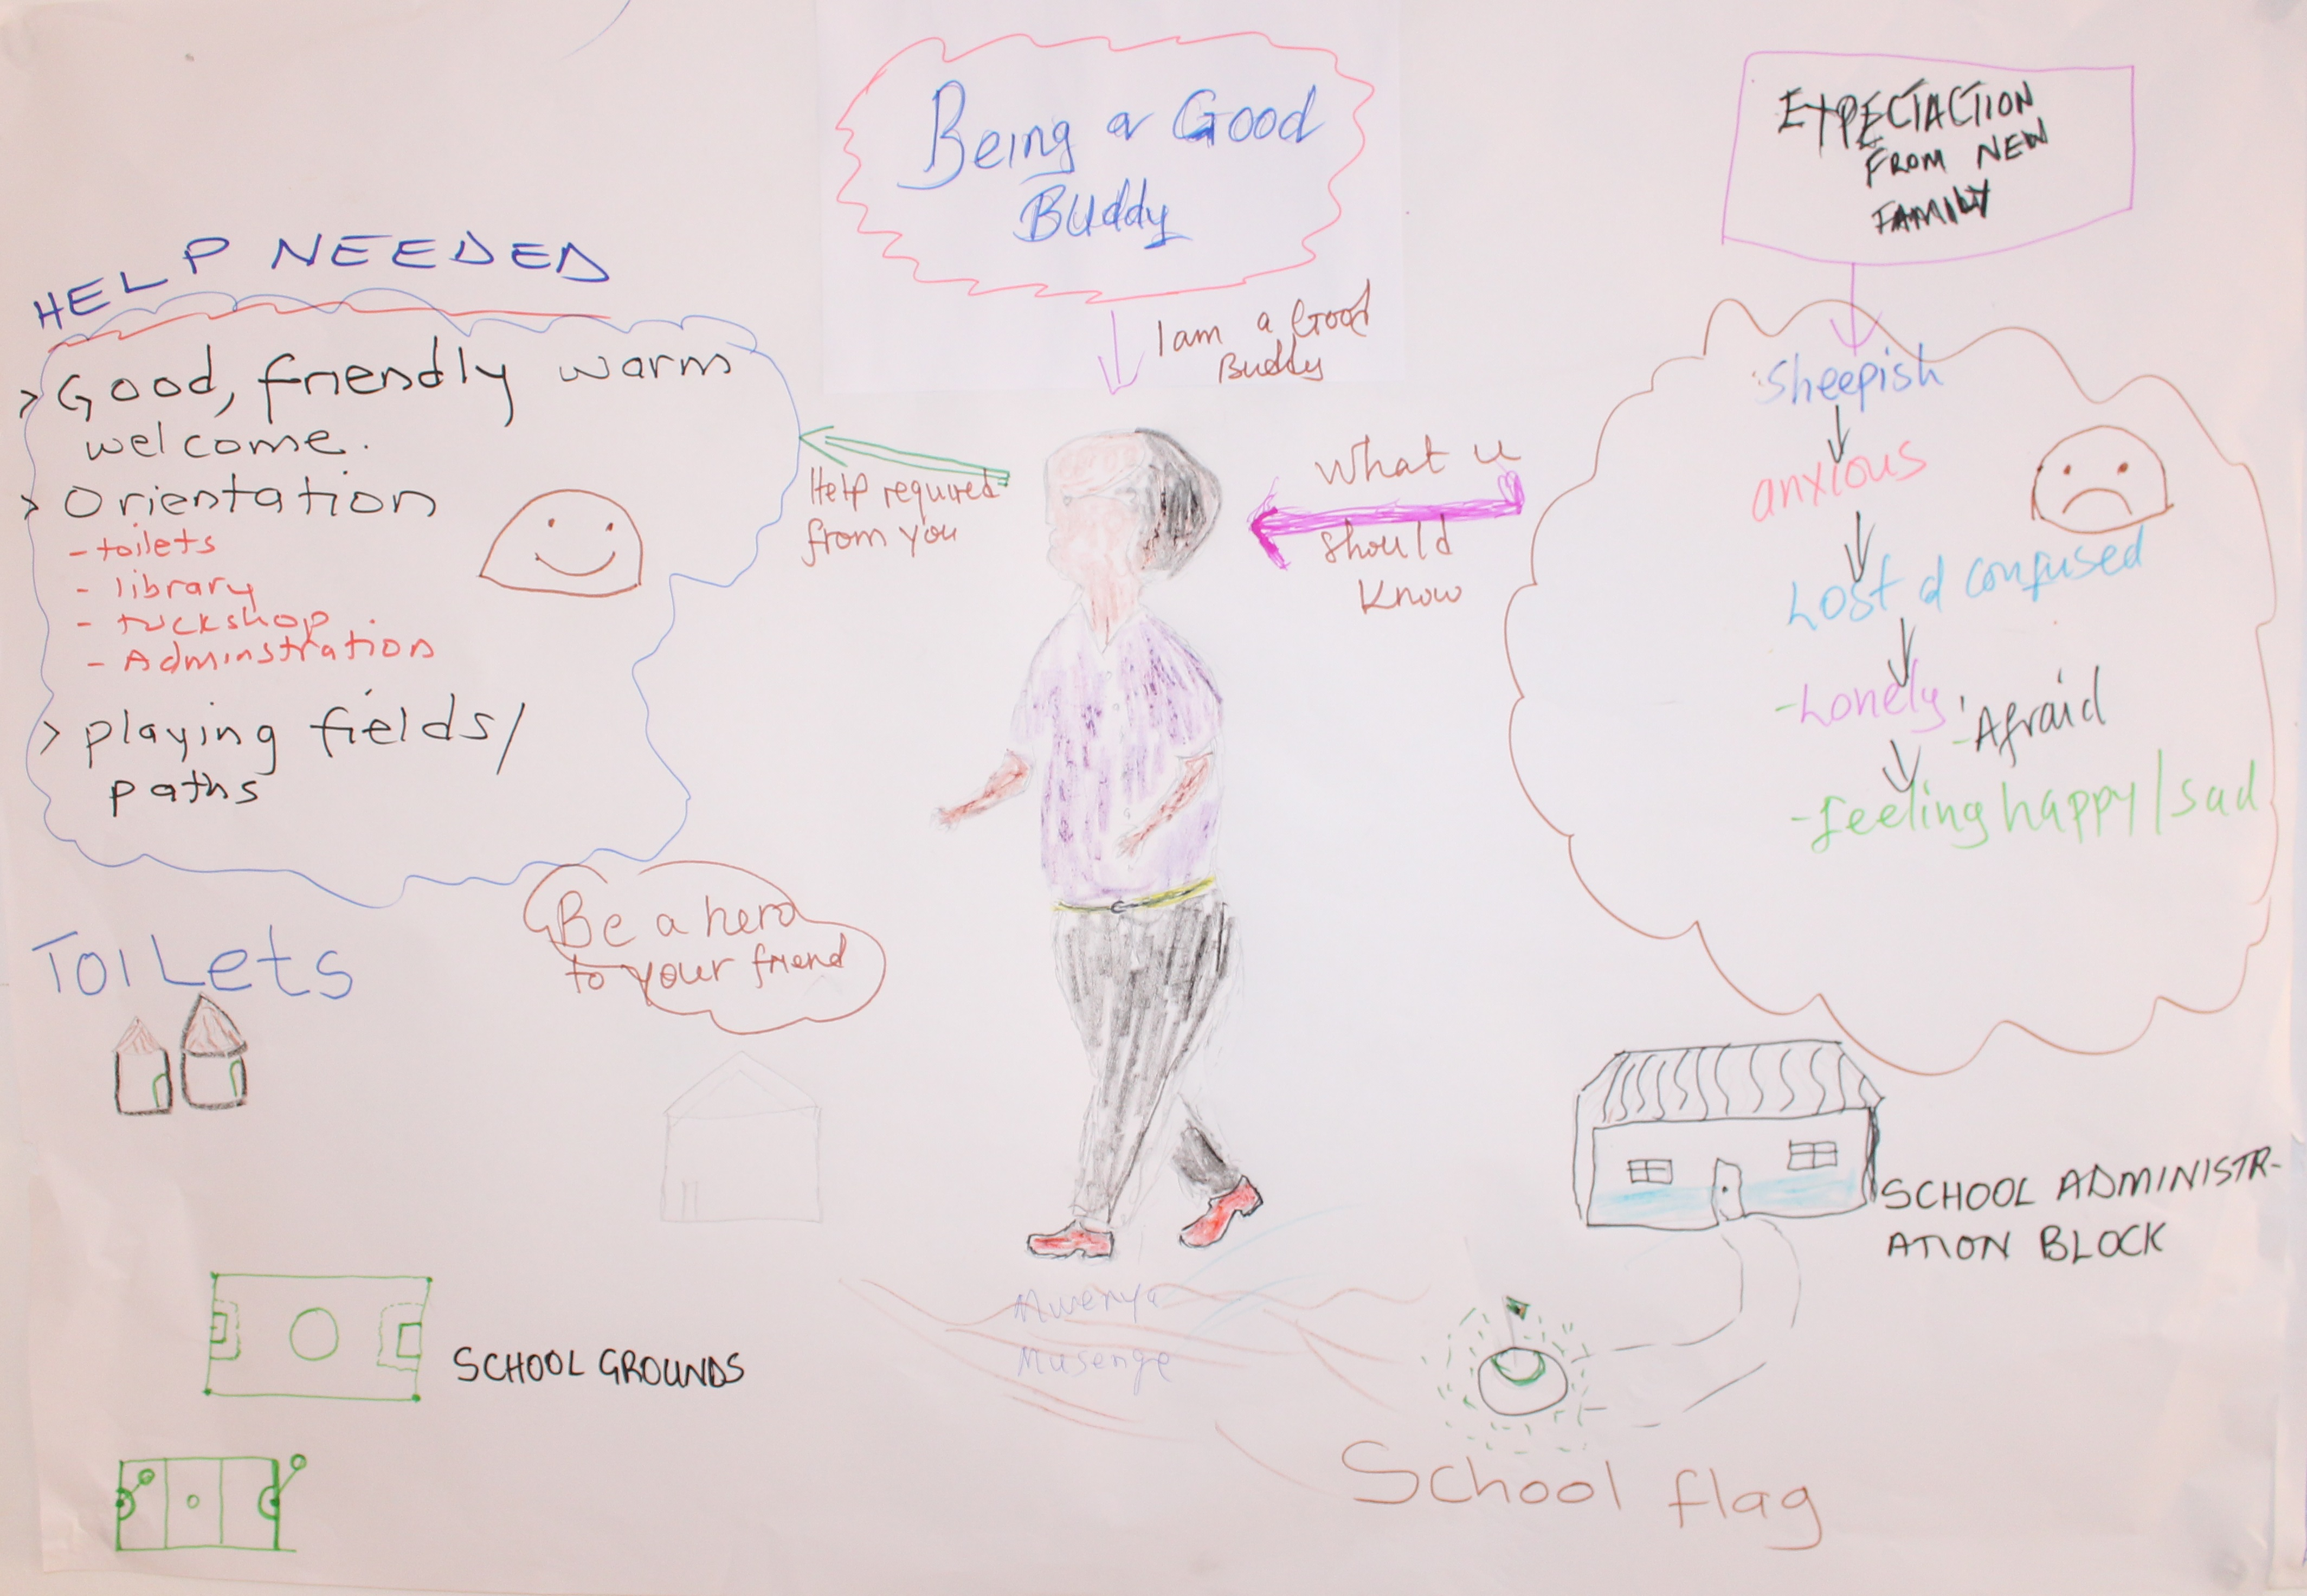 Being a Good
Buddy
I am a Good
Buddy
EXPECTACTION
FROM NEW
FAMILY
HELP NEEDED
> Good, friendly warm
welcome.
> Orientation
- toilets
- library
- tuckshop
- Adminstration
> playing fields/
paths
Help required
from you
What u
should
Know
Sheepish
anxious
Lost d confused
- Lonely
- Afraid
- feeling happy/sad
Be a hero
to your friend
ToiLets
SCHOOL ADMINISTR-
ATION BLOCK
SCHOOL GROUNDS
Mwenya
Musenge
School flag